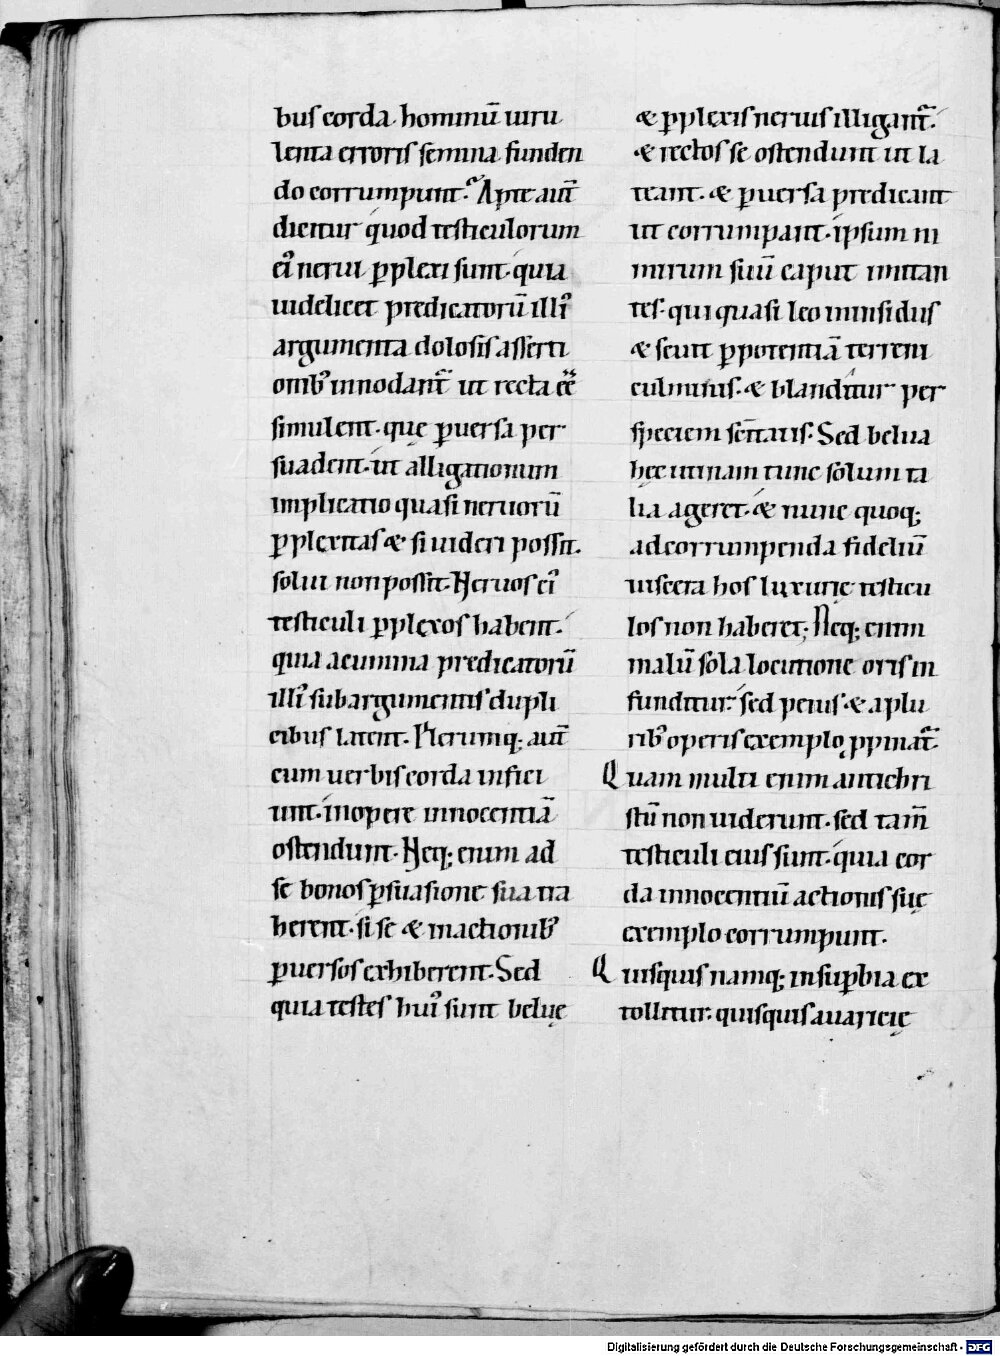 bus corda hominū uiru
lenta erroris semina funden
do corrumpunt. Apte aut̄
dicitur quod testiculorum
ei᾿ nerui ꝑplexi sunt. quia
uidelicet predicatorū illi᾿
argumenta dolosis asserti
onib᾿ innodant᷑ ut recta ee᷑
simulent. quę ꝑuersa per
suadent. ut alligationum
implicatio quasi neruorū
ꝑplexitas & si uideri possit.
solui non possit. Neruos ei᾿
testiculi ꝑplexos habent.
quia acumina predicatorū
illi᾿ sub argumentis dupli
cibus latent. Plerumq; aut̄
cum uerbis corda infici
unt. in opere innocentiā
ostendunt. Neq; enim ad
se bonos ꝑsuasione sua tra
herent. si se & in actionib᾿
ꝑuersos exhiberent. Sed
quia testes hui᾿ sunt beluę
& ꝑplexis neruis illigant᷑.
& rectos se ostendunt ut la
teant. & ꝑuersa predicant
ut corrumpant. ipsum ni
mirum suū caput imitan
tes. qui quasi leo in insidiis
& seuit ꝑ potentiā terreni
culminis. & blanditur per
speciem sc̄itatis. Sed belua
hęc utinam tunc solum ta
lia ageret. & nunc quoq;
ad corrumpenda fideliū
uiscera hos luxurię testicu
los non haberet; Neq; enim
malū sola locutione oris in
funditur sed peius & a plu
rib᾿ operis exemplo ꝓpinat᷑.
Quam multi enim antichri
stū non uiderunt. sed tam̄
testiculi eius sunt. quia cor
da innocentiū actionis suę
exemplo corrumpunt.
Quisquis namq; in suꝑbia ex
tollitur. quisquis auaricię
Digitalisierung gefördert durch die Deutsche Forschungsgemeinschaft - DFG